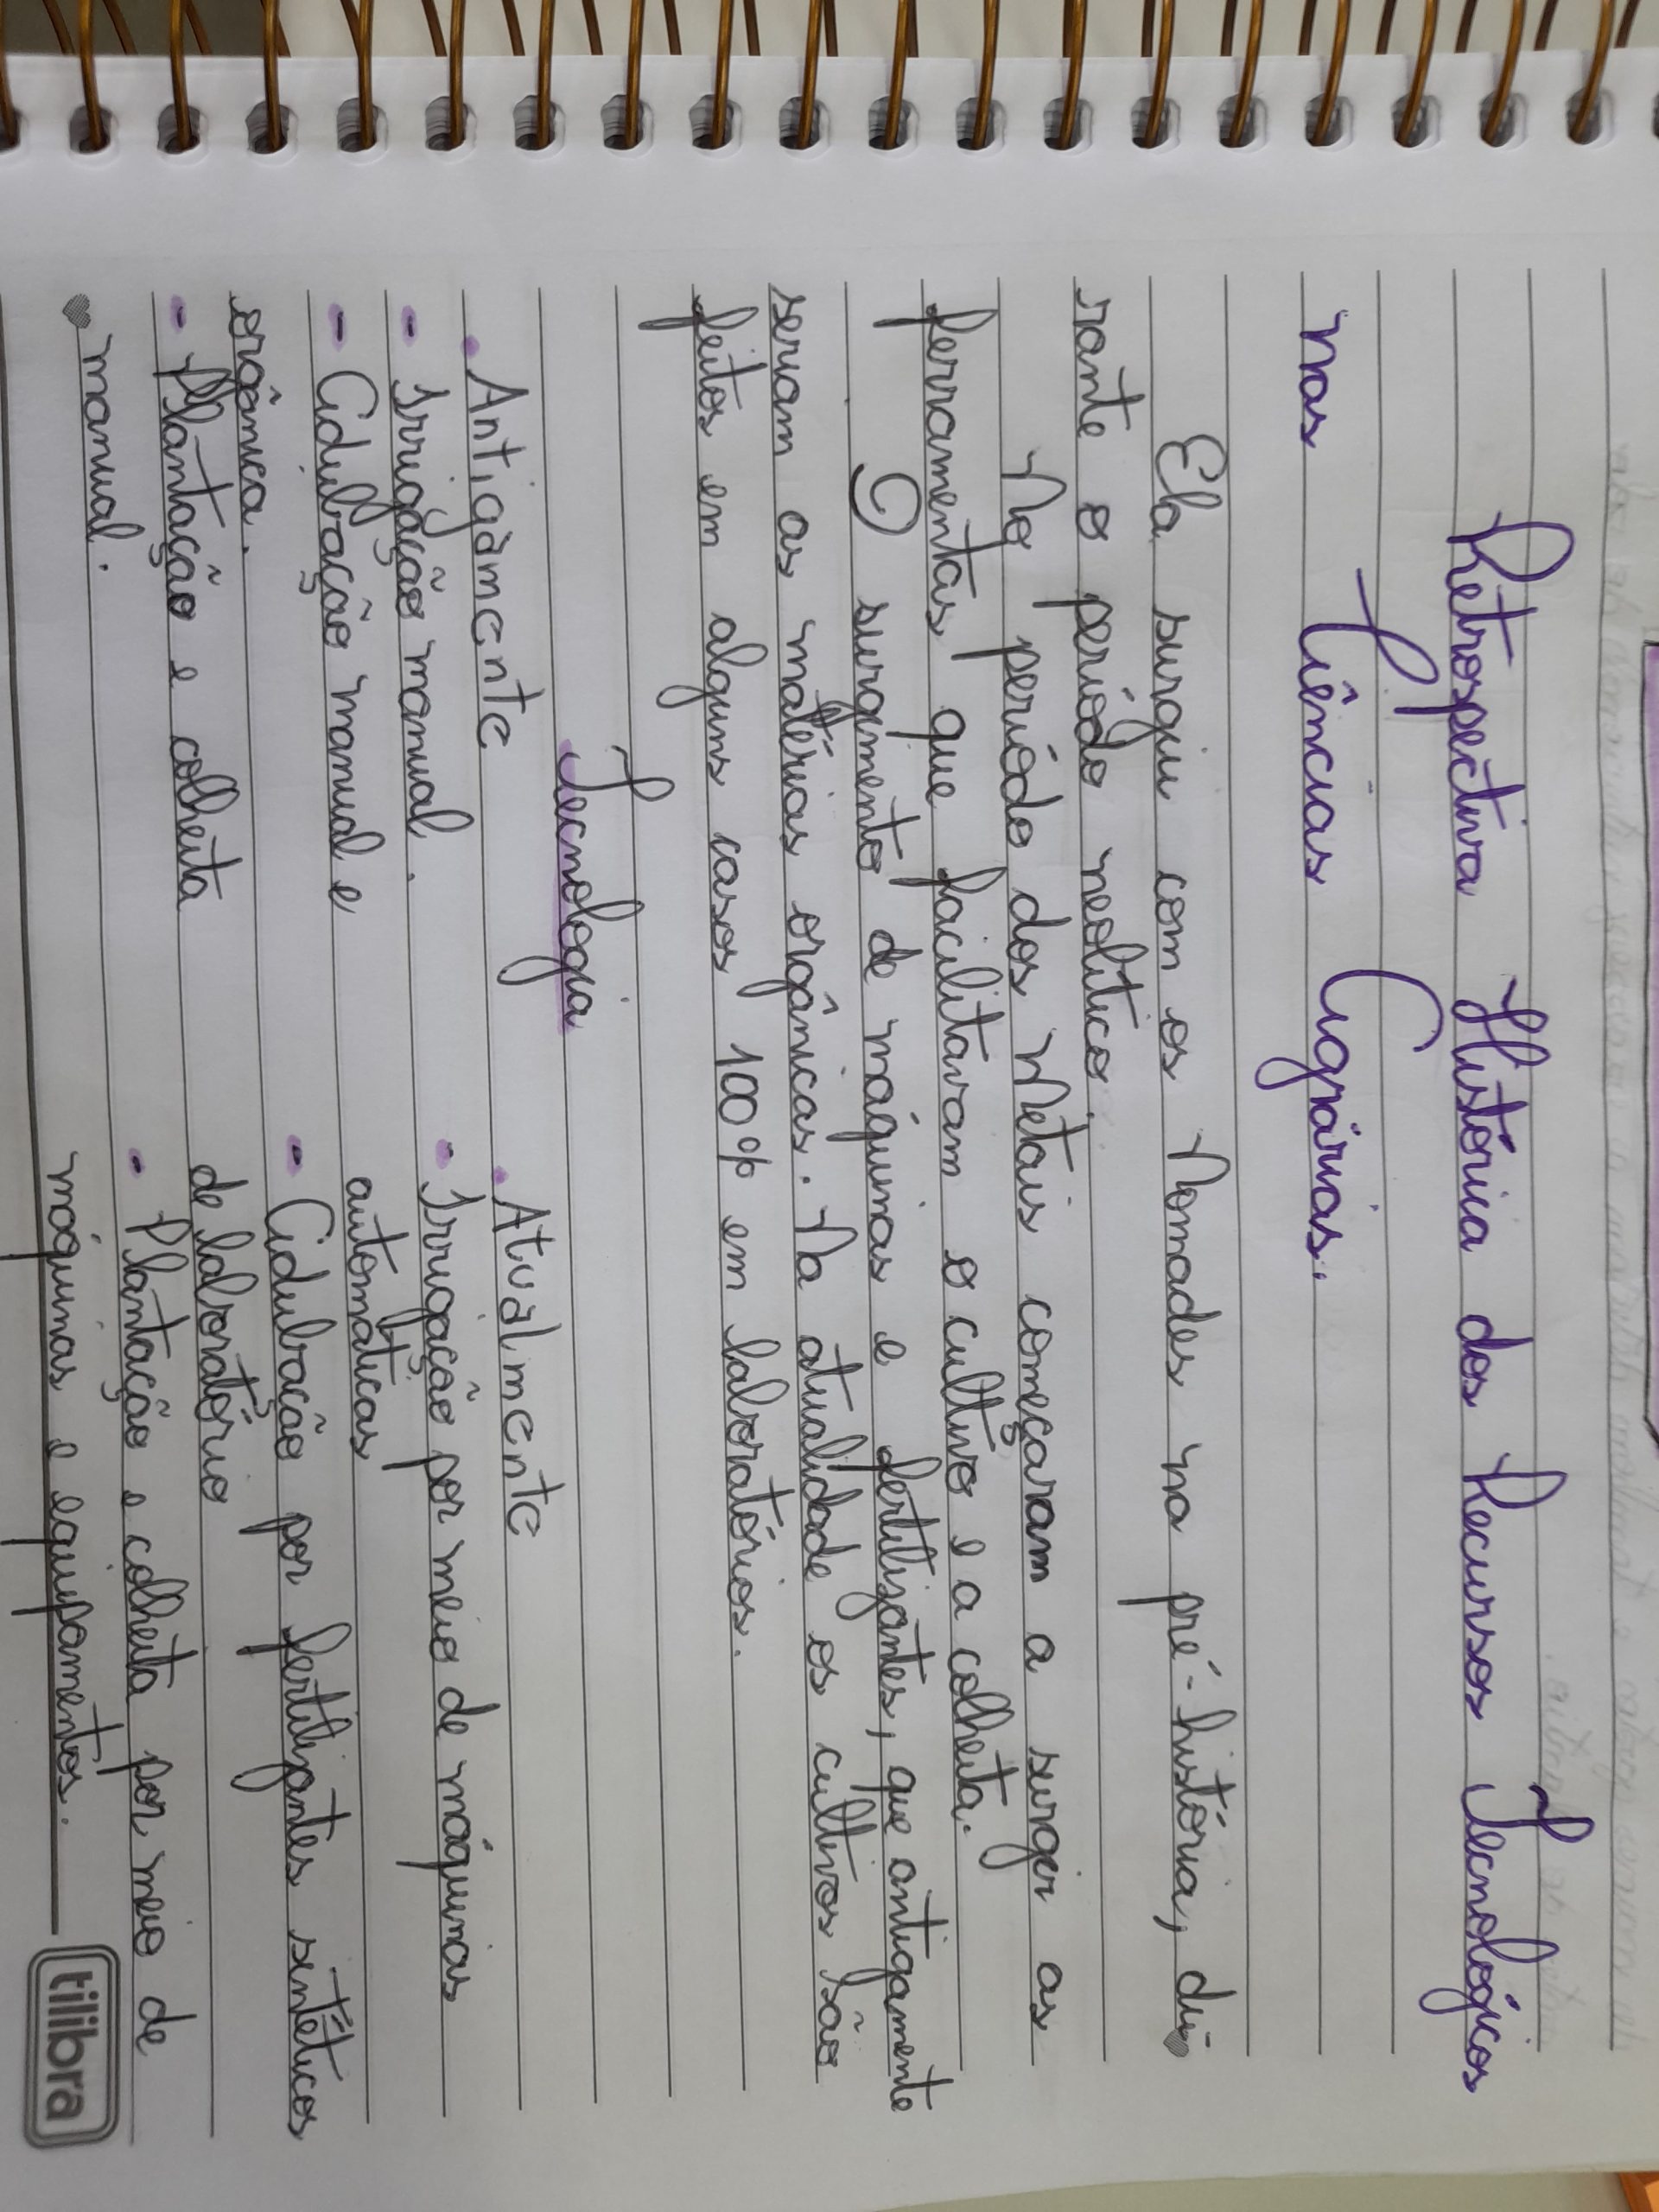 Retrospectiva Histórica dos Recursos Tecnológicos
nas Ciências Agrárias.
Ela surgiu com os Nomades na pré-história, du-
rante o período neolítico.
No período dos Metais começaram a surgir as
ferramentas que facilitavam o cultivo e a colheita.
O surgimento de máquinas e fertilizantes, que antigamente
seriam as matérias orgânicas. Na atualidade os cultivos são
feitos em alguns casos 100% em laboratórios.
Tecnologia
• Antigamente
- Irrigação manual.
- Adubação manual e
orgânica.
- Plantação e colheita
manual.
• Atualmente
- Irrigação por meio de máquinas
automáticas
- Adubação por fertilizantes sintéticos
de laboratório
- Plantação e colheita por meio de
máquinas e equipamentos.
tilibra